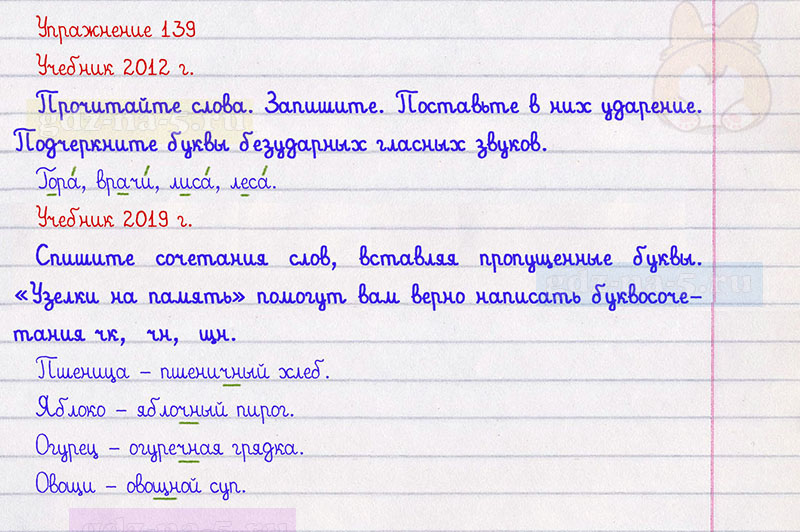 Упражнение 139
Учебник 2012 г.
Прочитайте слова. Запишите. Поставьте в них ударение.
Подчеркните буквы безударных гласных звуков.
Гора́, врачи́, лиса́, леса́.
Учебник 2019 г.
Спишите сочетания слов, вставляя пропущенные буквы.
«Узелки на память» помогут вам верно написать буквосоче-
тания чк, чн, щн.
Пшеница – пшеничный хлеб.
Яблоко – яблочный пирог.
Огурец – огуречная грядка.
Овощи – овощной суп.